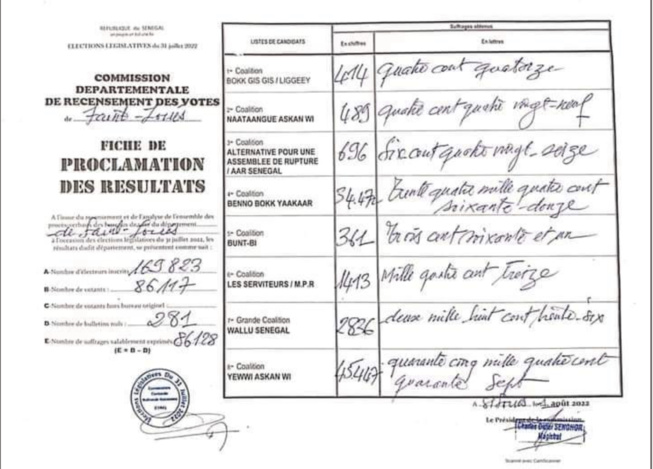 REPUBLIQUE DU SENEGAL
ELECTIONS LEGISLATIVES du 31 juillet 2022
COMMISSION
DEPARTEMENTALE
DE RECENSEMENT DES VOTES
de Saint-Louis
FICHE DE
PROCLAMATION
DES RESULTATS
A l'issue du recensement et de l'analyse de l'ensemble des
procès-verbaux des bureaux de vote du département
de Saint-Louis
à l'occasion des élections législatives du 31 juillet 2022, les
résultats dudit département, se présentent comme suit :
A-Nombre d'électeurs inscrits 169823
B-Nombre de votants : 86117
C-Nombre de votants hors bureau originel :
D-Nombre de bulletins nuls : 281
E-Nombre de suffrages valablement exprimés 86128
(E = B - D)
Elections Législatives Du 31 Juillet 2022
LISTES DE CANDIDATS
Suffrages obtenus
En chiffres
En lettres
1re Coalition
BOKK GIS GIS / LIGGEEY
414
quatre cent quatorze
2e Coalition
NAATAANGUE ASKAN WI
489
quatre cent quatre vingt-neuf
3e Coalition
ALTERNATIVE POUR UNE
ASSEMBLEE DE RUPTURE
/ AAR SENEGAL
696
Six cent quatre vingt-seize
4e Coalition
BENNO BOKK YAAKAAR
34.472
Trente quatre mille quatre cent
soixante-douze
5e Coalition
BUNT-BI
361
Trois cent soixante et un
6e Coalition
LES SERVITEURS / M.P.R
1413
Mille quatre cent Treize
7e Grande Coalition
WALLU SENEGAL
2836
deux mille huit cent trente-six
8e Coalition
YEWWI ASKAN WI
45447
quarante cinq mille quatre cent
quarante Sept
A St Louis le août 2022
Le Président de la commission
SENGHOR
Magistrat
Scanné avec CamScanner